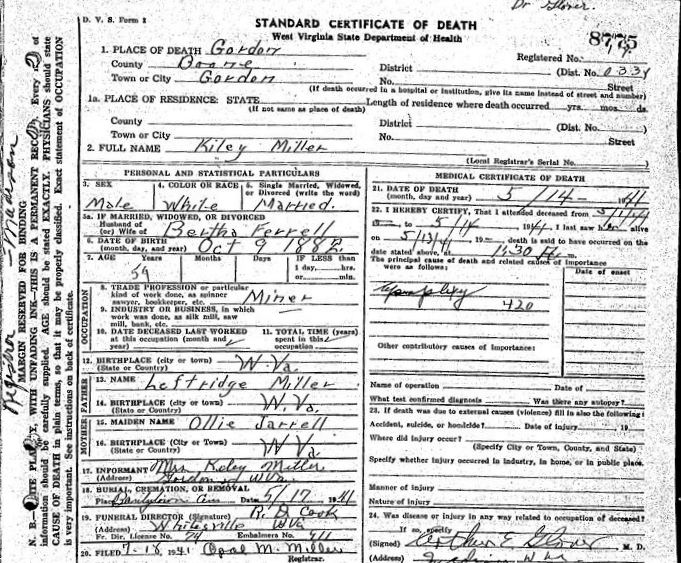 Dr Glover.
D. V. S. Form 2
STANDARD CERTIFICATE OF DEATH
West Virginia State Department of Health
8775
1. PLACE OF DEATH Gordon
Registered No.
County Boone
District (Dist. No. 0334
Town or City Gordon
No. Street
(If death occurred in a hospital or institution, give its name instead of street and number)
1a. PLACE OF RESIDENCE: STATE Length of residence where death occurred yrs. mos. ds.
(If not same as place of death)
County District (Dist. No. )
Town or City No. Street
2. FULL NAME Kiley Miller
(Local Registrar's Serial No. )
PERSONAL AND STATISTICAL PARTICULARS
3. SEX Male
4. COLOR OR RACE White
5. Single, Married, Widowed, or Divorced (write the word) Married.
5a. IF MARRIED, WIDOWED, OR DIVORCED
Husband of
(or) Wife of Bertha Ferrell
6. DATE OF BIRTH
(month, day, and year) Oct 9 1882.
7. AGE Years Months Days IF LESS than
59 1 day, hrs.
or min.
OCCUPATION
8. TRADE PROFESSION or particular
kind of work done, as spinner
sawyer, bookkeeper, etc. Miner
9. INDUSTRY OR BUSINESS, in which
work was done, as silk mill, saw
mill, bank, etc.
10. DATE DECEASED LAST WORKED
at this occupation (month and
year)
11. TOTAL TIME (years)
spent in this
occupation
12. BIRTHPLACE (city or town) W-Va.
(State or Country)
FATHER
13. NAME Leftridge Miller
14. BIRTHPLACE (city or town) W. Va.
(State or Country)
MOTHER
15. MAIDEN NAME Ollie Jarrell
16. BIRTHPLACE (City or Town) W Va
(State or Country)
17. INFORMANT Mrs. Kiley Miller
(Address) Gordon W Va.
18. BURIAL, CREMATION, OR REMOVAL
Place Date 5/17 1941
19. FUNERAL DIRECTOR (Signature) R. D. Cook
(Address) Whitesville W Va
Fr. Dir. License No. 74 Embalmers No. 411
20. FILED 7-18 1941 Opal M. Miller
Registrar.
MEDICAL CERTIFICATE OF DEATH
21. DATE OF DEATH
(month, day, and year) 5/14- 1941
22. I HEREBY CERTIFY, That I attended deceased from
to 5/14 1941, I last saw him alive
on 5/13/41, 19 death is said to have occurred on the
date stated above, at
The principal cause of death and related causes of Importance
were as follows:
Date of onset
420
Other contributory causes of importance:
Name of operation Date of
What test confirmed diagnosis Was there any autopsy?
23. If death was due to external causes (violence) fill in also the following:
Accident, suicide, or homicide? Date of injury 19
Where did injury occur?
(Specify City or Town, County, and State)
Specify whether injury occurred in industry, in home, or in public place.
Manner of injury
Nature of injury
24. Was disease or injury in any way related to occupation of deceased?
If so, specify
(Signed) Arthur E Glover M. D.
(Address) Madison W Va
Registrar - Madison
MARGIN RESERVED FOR BINDING
N. B.—WRITE PLAINLY, WITH UNFADING INK—THIS IS A PERMANENT RECORD. Every item of
information should be carefully supplied. AGE should be stated EXACTLY. PHYSICIANS should state
CAUSE OF DEATH in plain terms, so that it may be properly classified. Exact statement of OCCUPATION
is very important. See instructions on back of certificate.